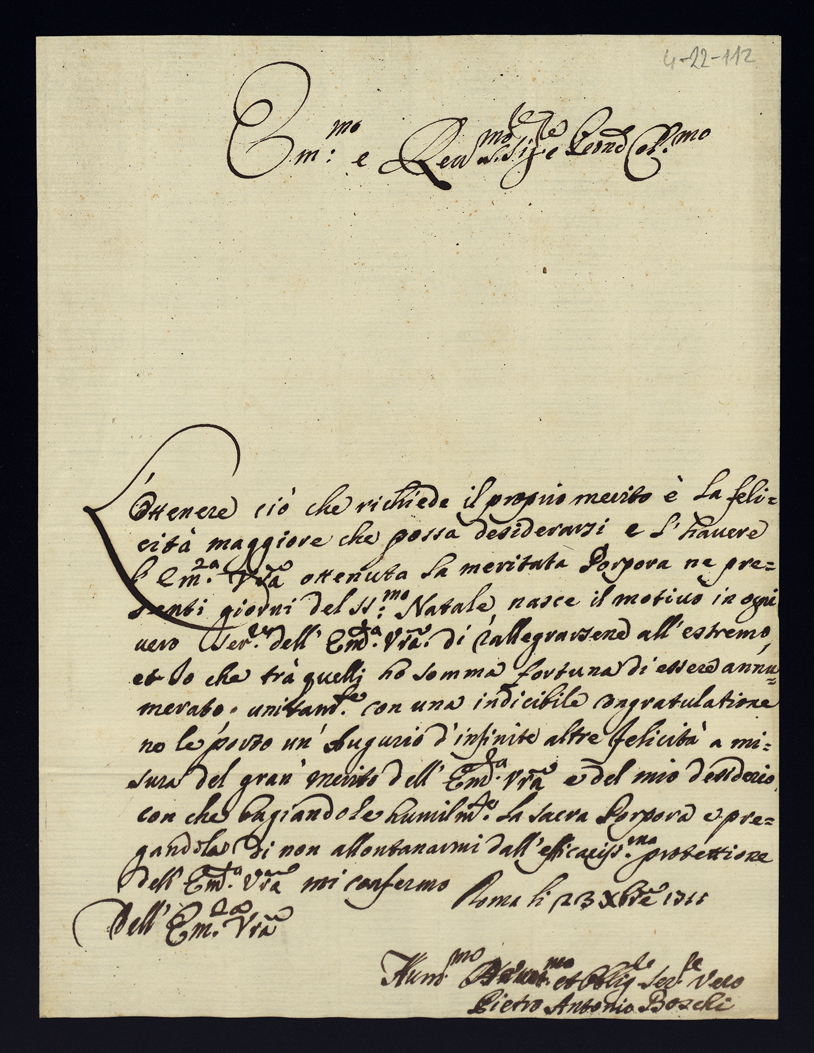 4-22-112
Em:mo e Reu.mo Sig.re e Pron Col.mo
L'ottenere ciò che richiede il proprio merito è la feli=
cità maggiore che possa desiderarsi e l'havere
l'Em.za Vrã ottenuta la meritata Porpora ne pre=
senti giorni del SS:mo Natale nasce il motivo in ogni
vero Ser.re dell'Em.za Vrã di rallegrarsene all'estremo,
et Io che trà quelli hò somma fortuna di essere annu=
merato unitam.te con una indicibile congratulatione
ne le porto un'Augurio d'infinite altre felicità a mi=
sura del gran' merito dell'Em.za Vrã e del mio desiderio,
con che bagiandole humilm.te la sacra Porpora e pre=
gandola di non allontanarmi dall'efficaciss.ma protettione
dell'Em.za Vrã mi confermo
Roma li 23 Xbre 1711
Dell'Em.za Vrã
Hum.mo et Oblig. Ser.re Vero
Pietro Antonio Boschi